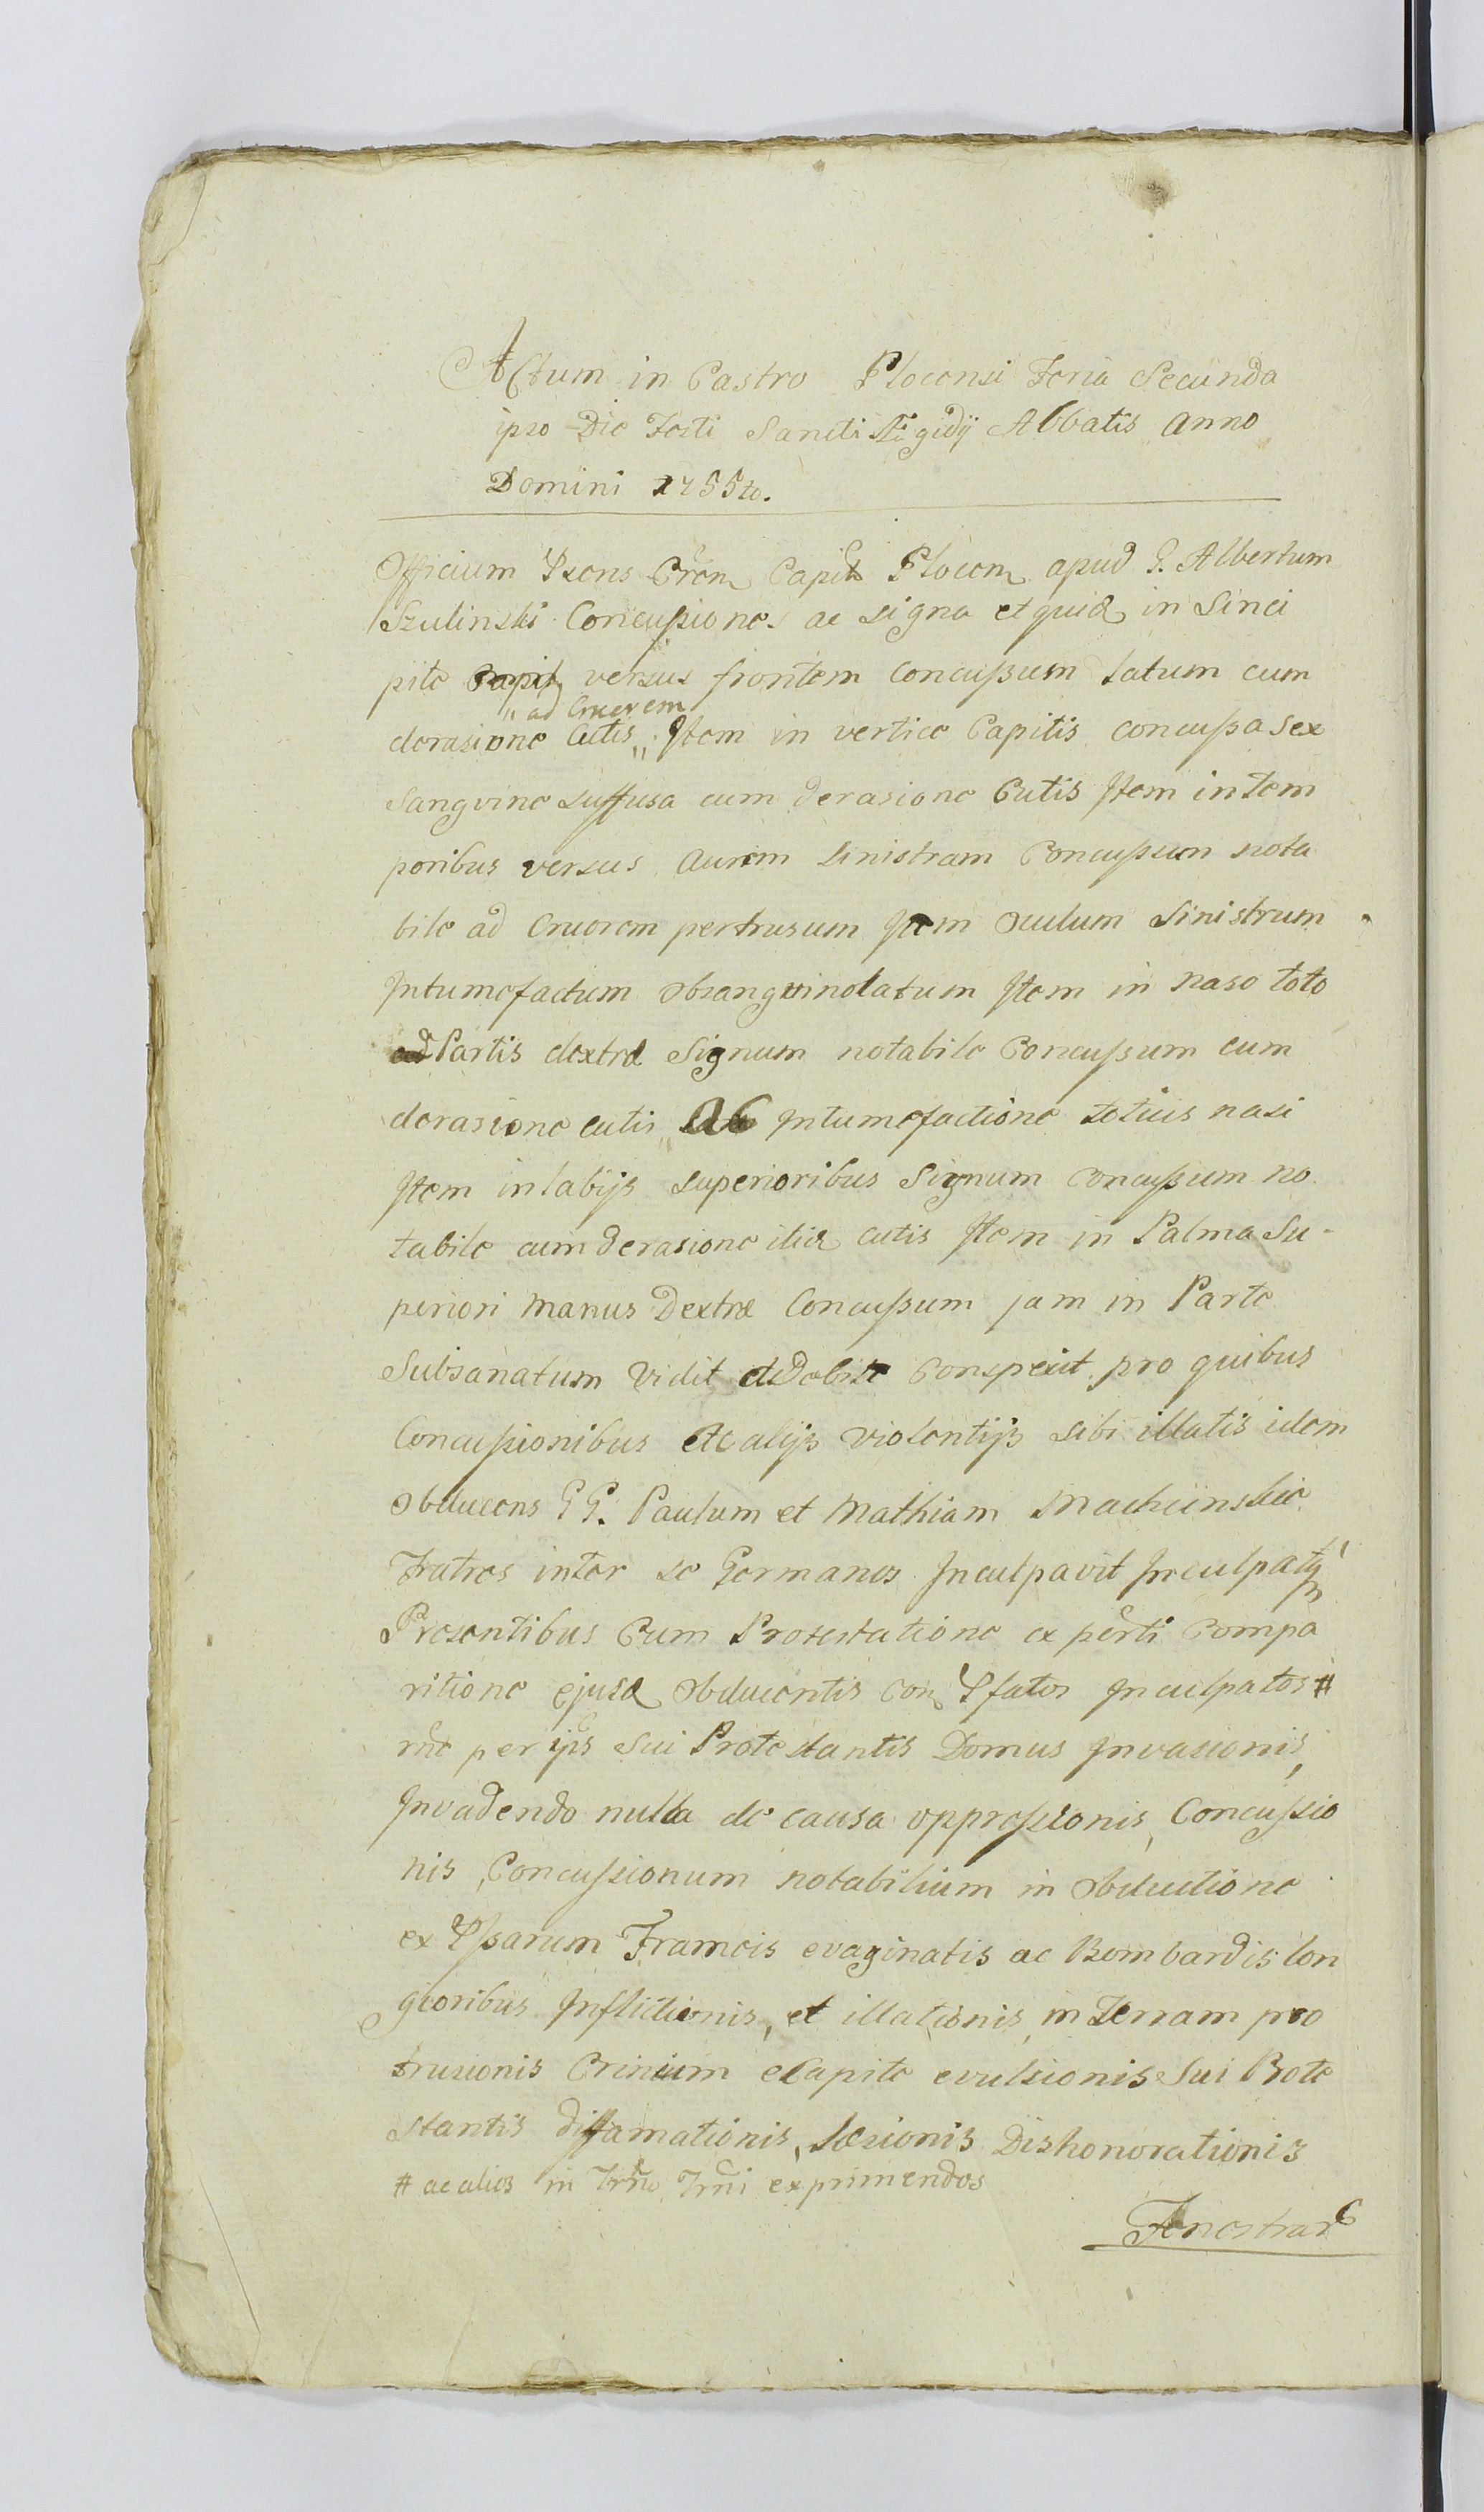 Actum in Castro Plocensi Feria Secunda
ipso Die Festi Sancti Ægidÿ Abbatis Anno
Domini 1755to.
Officium Prsens Cren Capit Plocen apud G. Albertum
Szulinski Concussiones ac Signa et quid in Sinci
pite Capit versus frontem concussum latum cum
derasione Cutis " ad Cruorem " Item in vertice Capitis concussa Sex
Sangvine suffusa cum derasione Cutis Item in tem
poribus versus Aurem Sinistram Concussum nota
bile ad Cruorem pertrusum Item Oculum Sinistrum
Intumefactum obsangvinolatum Item in naso toto
Partis dextræ Signum notabile Concussum cum
derasione cutis ac Intumefactione totius nasi
Item in labÿs superioribus Signum concussum no
tabile cum derasione itid cutis Item in Palma Su-
periori Manus Dextræ Concussum jam in Parte
Subsanatum vidit et conspexit pro quibus
Concussionibus et alÿs violentÿs sibi illatis idem
obducens GG. Paulum et Mathiam Machcinskie
Fratres inter se Germanos Inculpavit Inculpatq
Presentibus Cum Protestatione ex perti Compa
ritione ejusd obducentis con Pfatos Inculpatos #
rne per ips sui Protestantis Domus Invasionis,
Invadendo nulla de causa oppressionis, Concussio
nis, Concussionum notabilium in obductione
ex Pssarum Frameis evaginatis ac Bombardis lon
gioribus Inflictionis, et illationis in Terram pro
trusionis Crinium e Capite evulsionis Sui Prote
stantis diffamationis, Læsionis Dishonorationis
# ac alios in Trno Trni exprimendos
Fenestrar